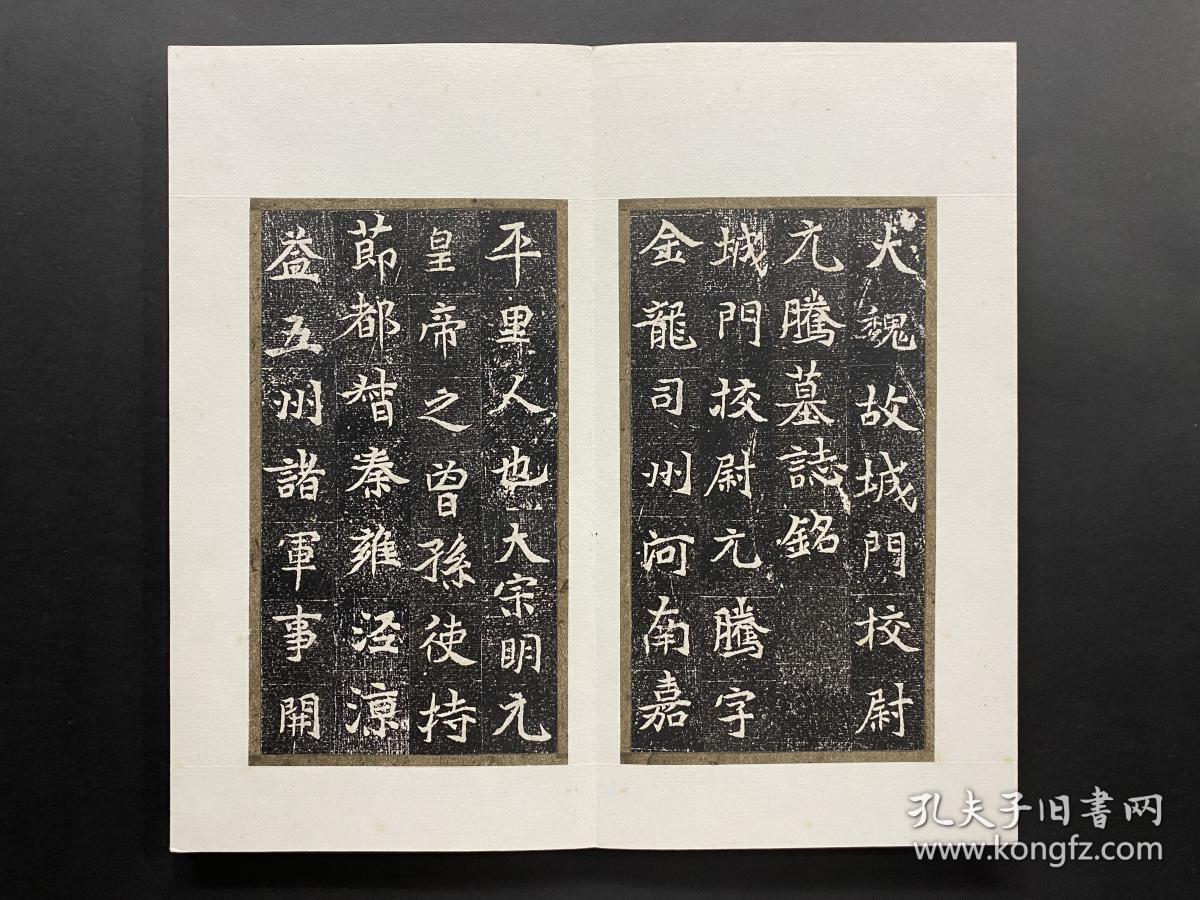 大魏故城門挍尉
元騰墓誌銘
城門挍尉元騰字
金龍司州河南嘉
平里人也大宗明元
皇帝之曾孫使持
莭都督秦雍涇涼
益五州諸軍事開
孔夫子旧書网
www.kongfz.com